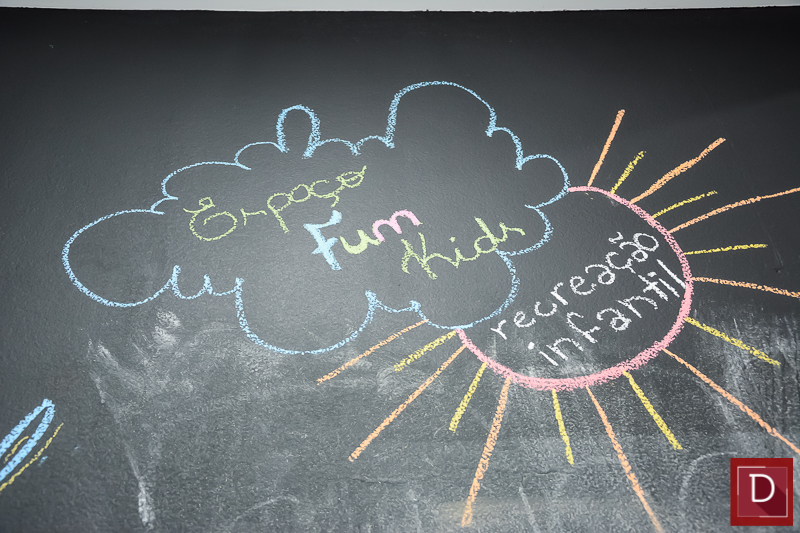 Espaço
Fun
Kids
recreação
infantil
D